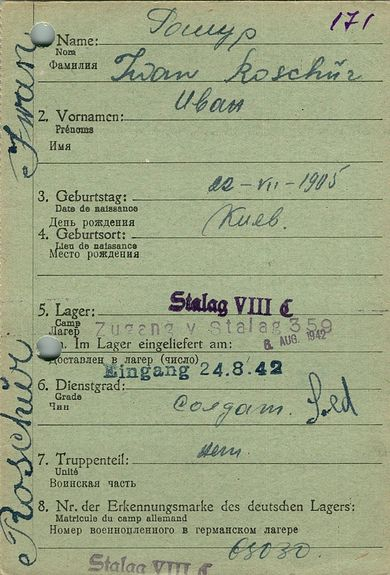 171
1. Name:
Nom
Фамилия
Iwan Koschür
2. Vornamen:
Prénoms
Имя
Иван
3. Geburtstag:
Date de naissance
День рождения
22-VII-1905
4. Geburtsort:
Lieu de naissance
Место рождения
Киев.
5. Lager:
Camp
Лагерь
Stalag VIII C
Zugang v Stalag 359
6. AUG. 1942
Im Lager eingeliefert am:
Доставлен в лагерь (число)
Eingang 24.8.42
6. Dienstgrad:
Grade
Чин
солдат. Sold
7. Truppenteil:
Unité
Воинская часть
нет.
8. Nr. der Erkennungsmarke des deutschen Lagers:
Matricule du camp allemand
Номер военнопленного в германском лагере
63030.
Stalag VIII C
Roschür Iwan